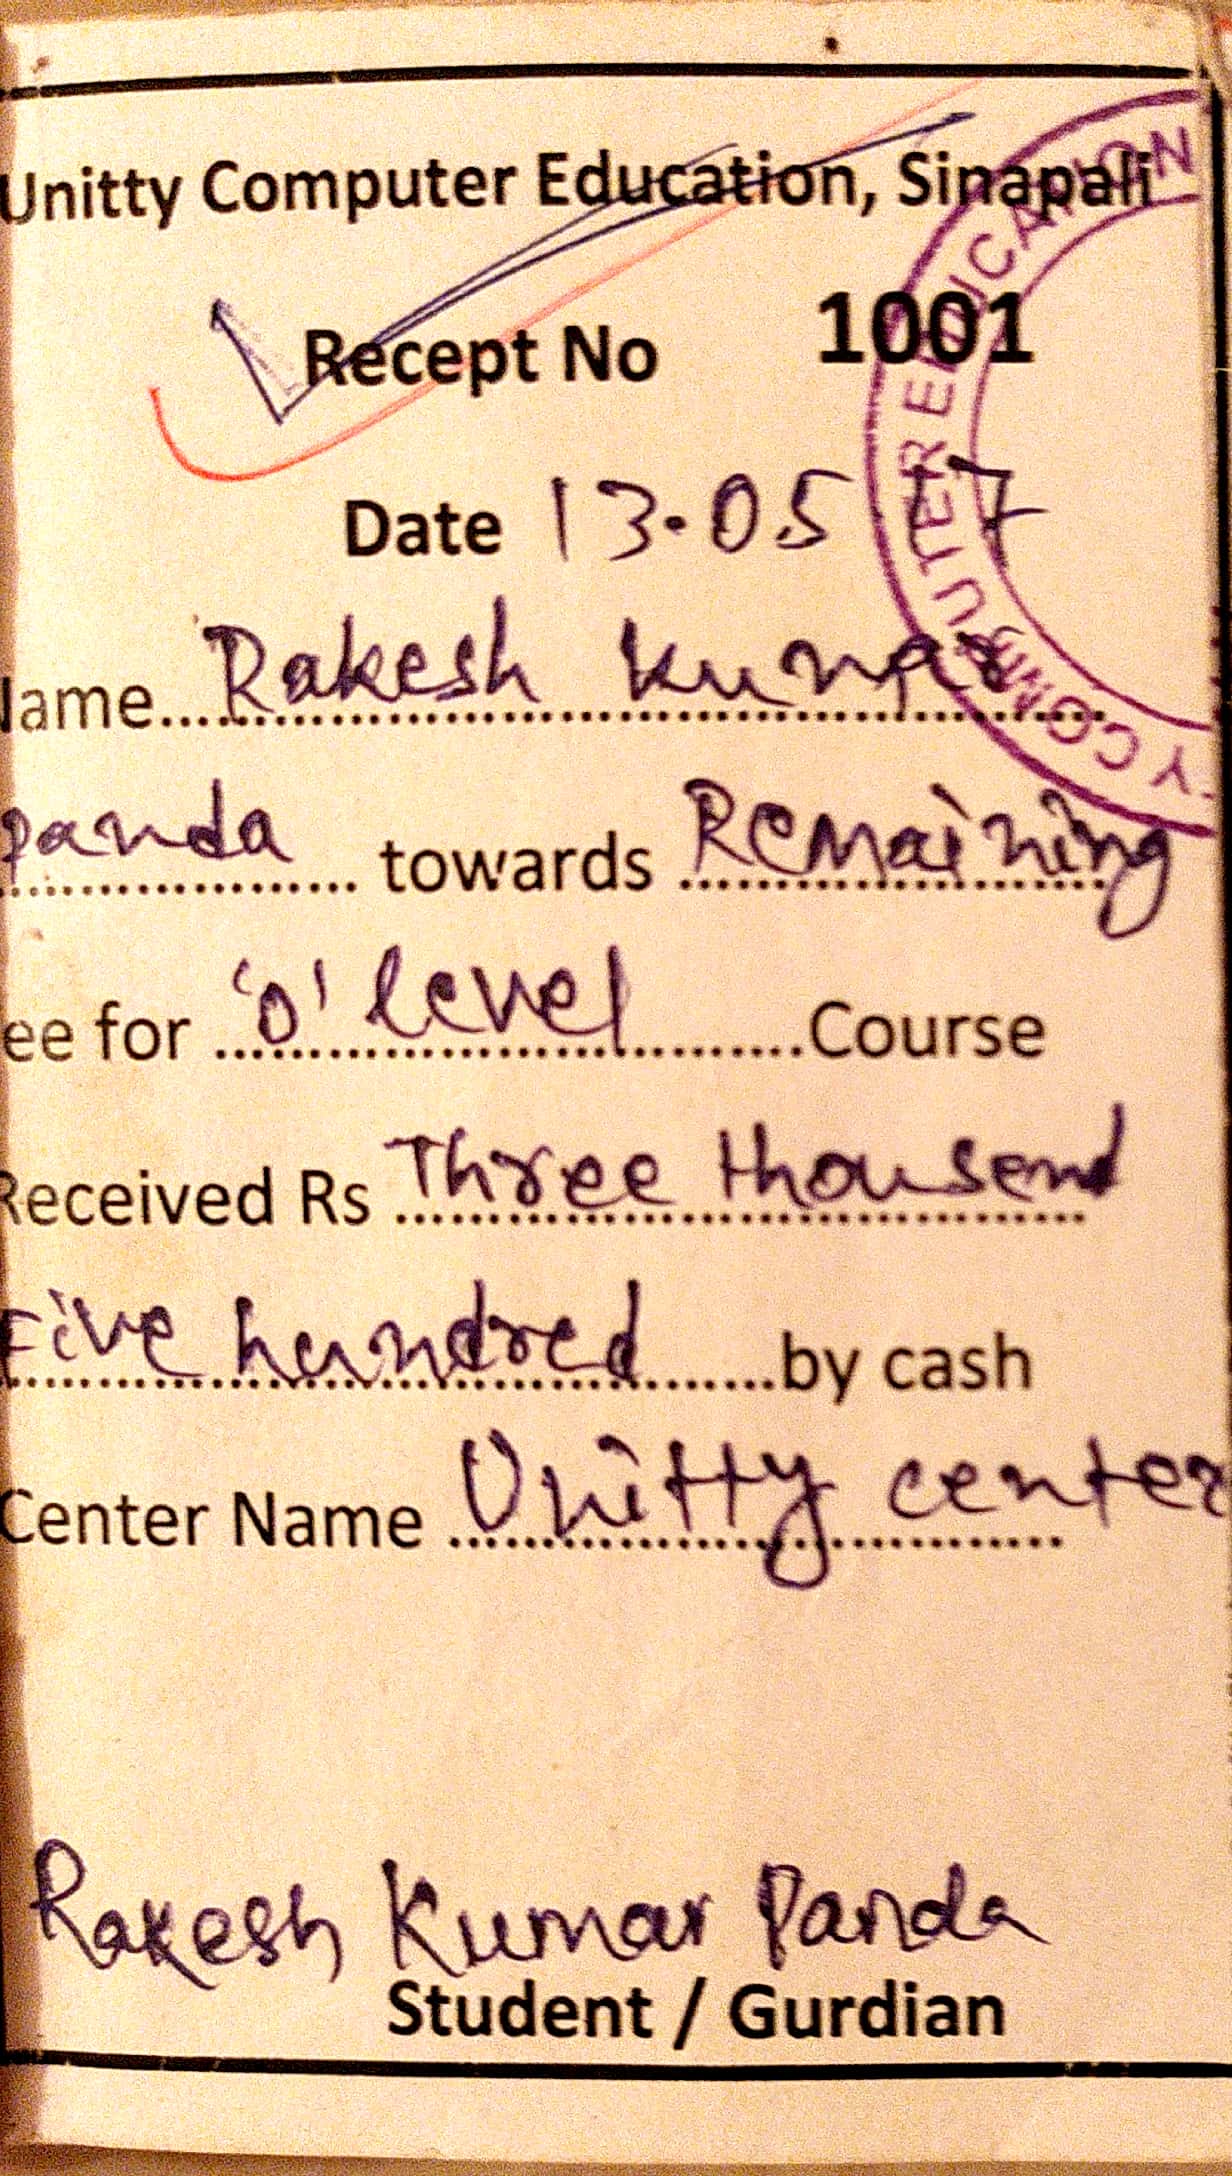 Unitty Computer Education, Sinapali
Recept No 1001
Date 13.05 17
ame Rakesh Kumar
panda towards Remaining
ee for 'O' level Course
Received Rs Three thousend
Five hundred by cash
Center Name Unitty center
Rakesh Kumar Panda
Student / Gurdian
Y COMPUTER EDUCATION